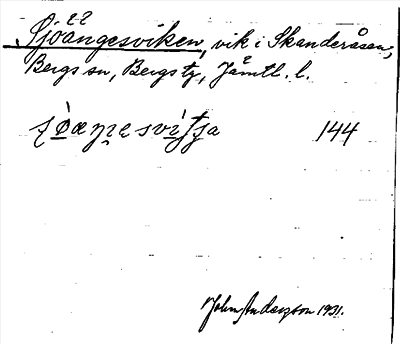 Sjöängesviken, vik i Skanderåsen,
Bergs sn, Bergs tg, Jämtl. l.
144
John Anderzon 1931.